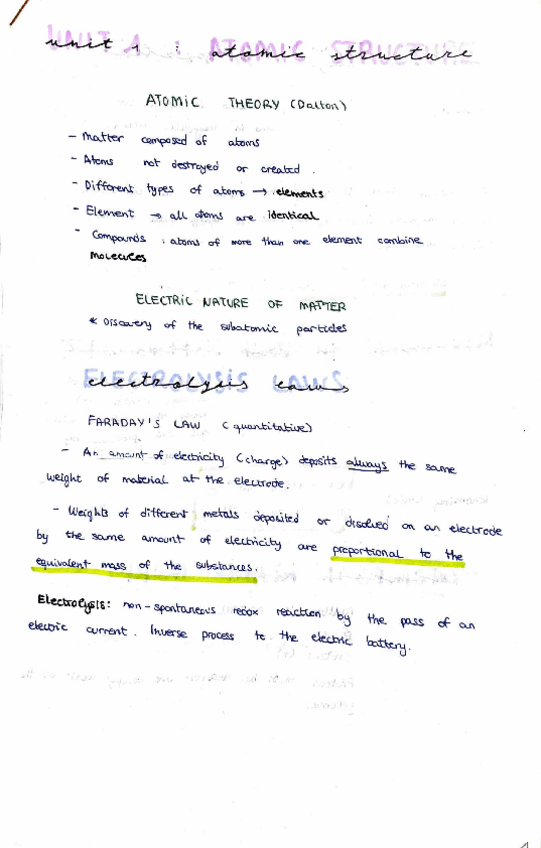 unit 1 : atomic structure
ATOMIC THEORY (Dalton)
- Matter composed of atoms
- Atoms not destroyed or created.
- Different types of atoms → elements
- Element → all atoms are identical
- Compounds : atoms of more than one element combine
Molecules
ELECTRIC NATURE OF MATTER
* Discovery of the subatomic particles
electrolysis laws
FARADAY'S LAW (quantitative)
- An amount of electricity (charge) deposits always the same
weight of material at the electrode.
- Weights of different metals deposited or disolved on an electrode
by the same amount of electricity are proportional to the
equivalent mass of the substances.
Electrolysis: non-spontaneous redox reaction by the pass of an
electric current. Inverse process to the electric battery.